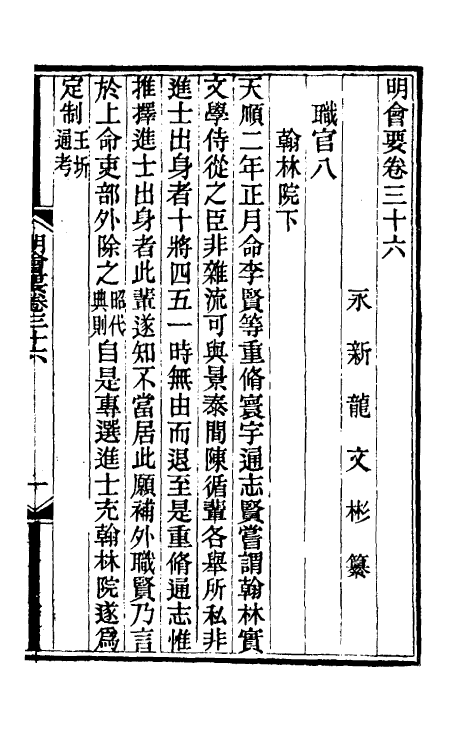 明會要卷三十六
永新龍文彬纂
職官八
翰林院下
天順二年正月命李賢等重脩寰宇通志賢嘗謂翰林實
文學侍從之臣非雜流可與景泰間陳循輩各舉所私非
進士出身者十將四五一時無由而退至是重脩通志惟
推擇進士出身者此輩遂知不當居此願補外職賢乃言
於上命吏部外除之昭代典則自是專選進士充翰林院遂爲
定制王圻通考
明會要卷三十六
一